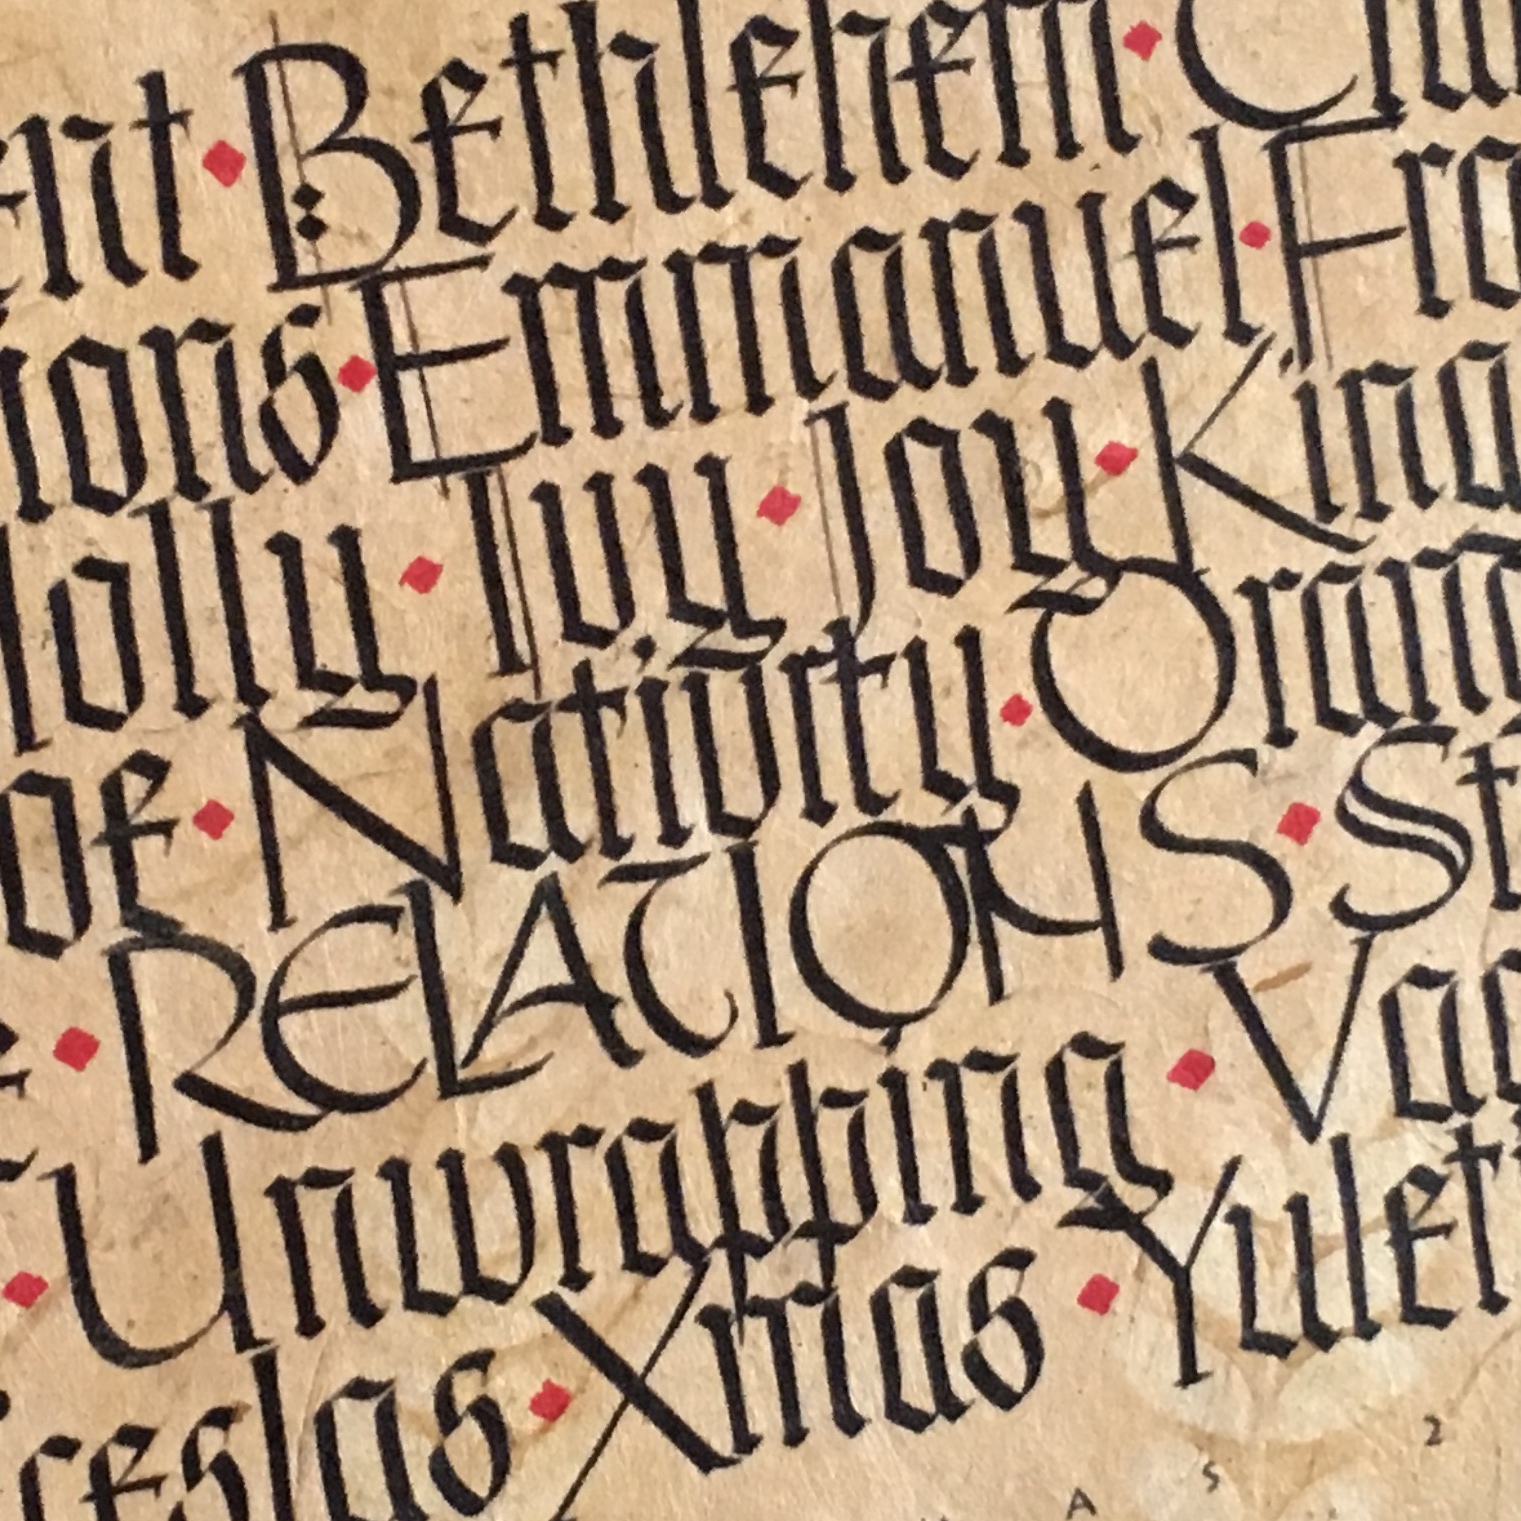 ent · Bethlehem ·
ions · Emmanuel · Fra
olly · Ivy · Joy · King
of · Nativity · Oran
RELATIONS · St
Unwrapping · Va
ceslas · Xmas · Yulet
A S 2